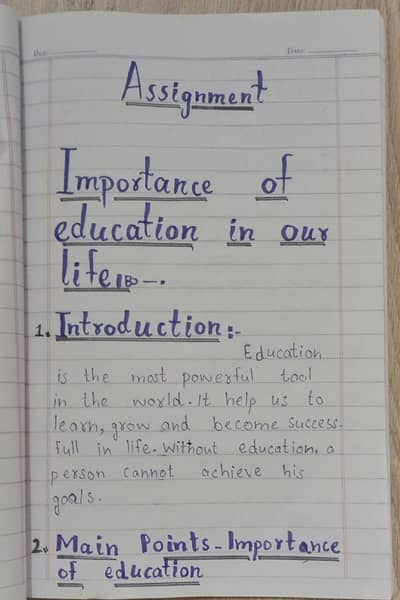 Date
Assignment
Importance of
education in our
life :-.
1. Introduction :-
Education
is the most powerful tool
in the world. It help us to
learn, grow and become Success-
full in life. Without education, a
person cannot achieve his
goals.
2. Main Points - Importance
of education